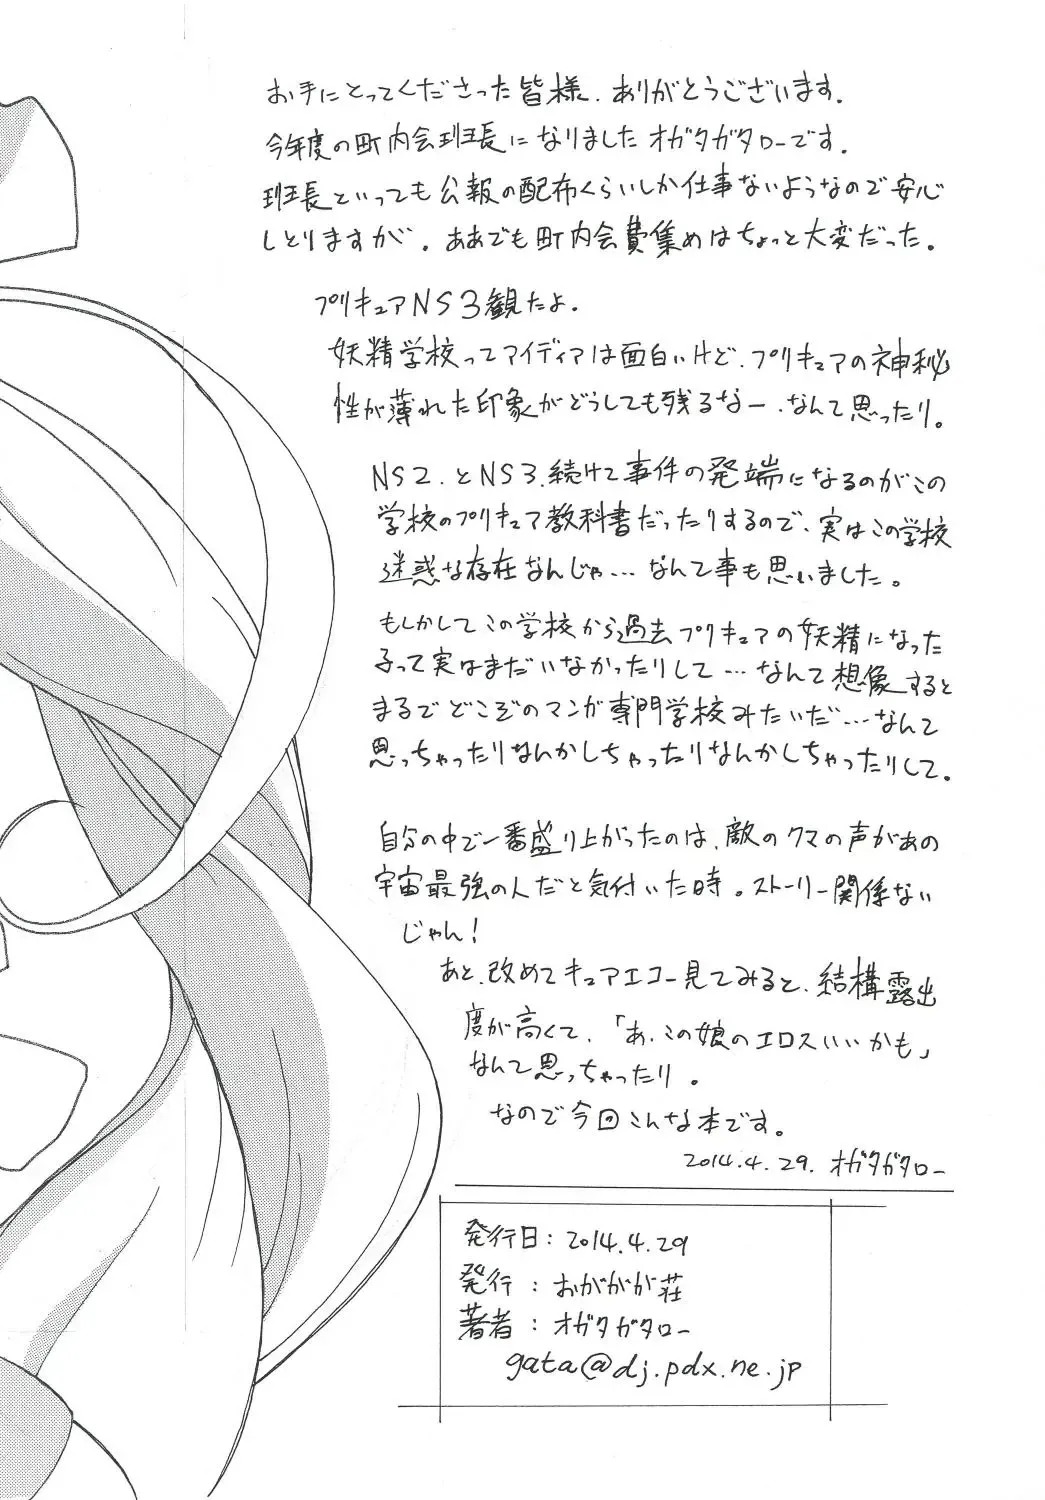 お手にとってくださった皆様、ありがとうございます。
今年度の町内会班長になりましたオガタガタローです。
班長といっても公報の配布くらいしか仕事ないようなので安心
しとりますが。ああでも町内会費集めはちょっと大変だった。
プリキュアNS3観たよ。
妖精学校ってアイディアは面白いけど、プリキュアの神秘
性が薄れた印象がどうしても残るなー、なんて思ったり。
NS2、とNS3、続けて事件の発端になるのがこの
学校のプリキュア教科書だったりするので、実はこの学校
迷惑な存在なんじゃ…なんて事も思いました。
もしかしてこの学校から過去プリキュアの妖精になった
子って実はまだいなかったりして…なんて想像すると
まるでどこぞのマンガ専門学校みたいだ…なんて
思っちゃったりなんかしちゃったりなんかしちゃったりして。
自分の中で一番盛り上がったのは、敵のクマの声があの
宇宙最強の人だと気付いた時。ストーリー関係ない
じゃん!
あと、改めてキュアエコー見てみると、結構露出
度が高くて、「あ、この娘のエロスいいかも」
なんて思っちゃったり。
なので今回こんな本です。
2014.4.29. オガタガタロー
発行日:2014.4.29
発行:おががが荘
著者:オガタガタロー
gata@dj.pdx.ne.jp